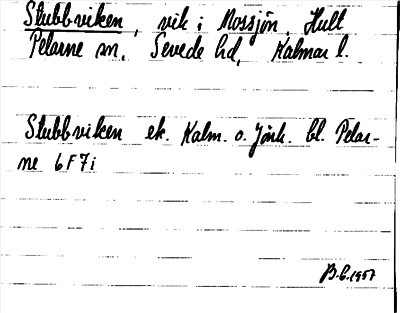 Stubbviken, vik i Mossjön, Hult
Pelarne sn, Sevede hd, Kalmar l.
Stubbviken ek. Kalm. o. Jönk. bl. Pelar-
ne 6F7i
B.E. 1957